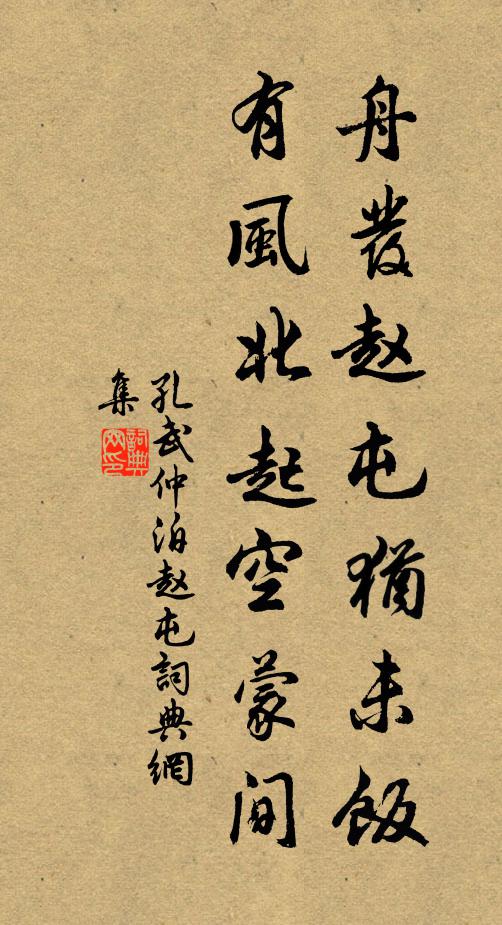 舟發赵屯猶未飯
有風北起空蒙间
孔武仲泊赵屯詞典網
集
詞典网印